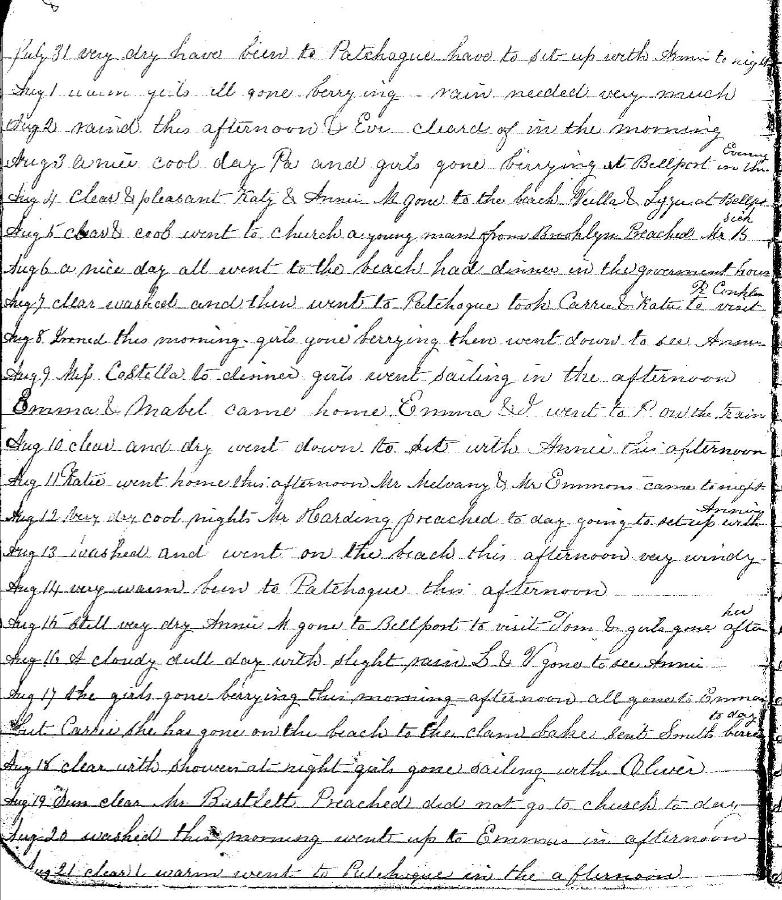 July 31 very dry have been to Patchogue have to set up with Annie to night
Aug 1 warm girls all gone berrying - rain needed very much
Aug 2 raind this afternoon & Eve cleard of in the morning
Aug 3 a nice cool day Pa and girls gone berrying at Bellport in the Evening
Aug 4 clear & pleasant Katy & Annie M gone to the beach Vella & Lyzu at Bellpt
Aug 5 clear & cool went to church a young man from Brooklyn Preached Mr B sick
Aug 6 a nice day all went to the beach had dinner in the government house
Aug 7 clear washed and then went to Patchogue took Carrie & Katie to visit R Conklin
Aug 8 Ironed this morning - girls gone berrying then went down to see Annie
Aug 9 Miss Costella to dinner girls went sailing in the afternoon
Emma & Mabel came home Emma & I went to P. on the train
Aug 10 clear and dry went down to set with Annie this afternoon
Aug 11 Katie went home this afternoon Mr Melvany & Mr Emmons came to night
Aug 12 Very dry cool nights Mr Harding preached to day going to set up with Annie
Aug 13 washed and went on the beach this afternoon very windy
Aug 14 very warm been to Patchogue this afternoon
Aug 15 Still very dry Annie M gone to Bellport to visit Tom & girls gone after her
Aug 16 A cloudy dull day with slight rain L & V gone to see Annie
Aug 17 The girls gone berrying this morning afternoon all gone to Emmas
but Carrie she has gone on the beach to the clam bake sent Smith berries to day
Aug 18 clear with shower at night girls gone sailing with Oliver
Aug 19 Sun clear Mr Bartlett Preached did not go to church to day
Aug 20 washed this morning went up to Emmas in afternoon
Aug 21 clear & warm went to Patchogue in the afternoon